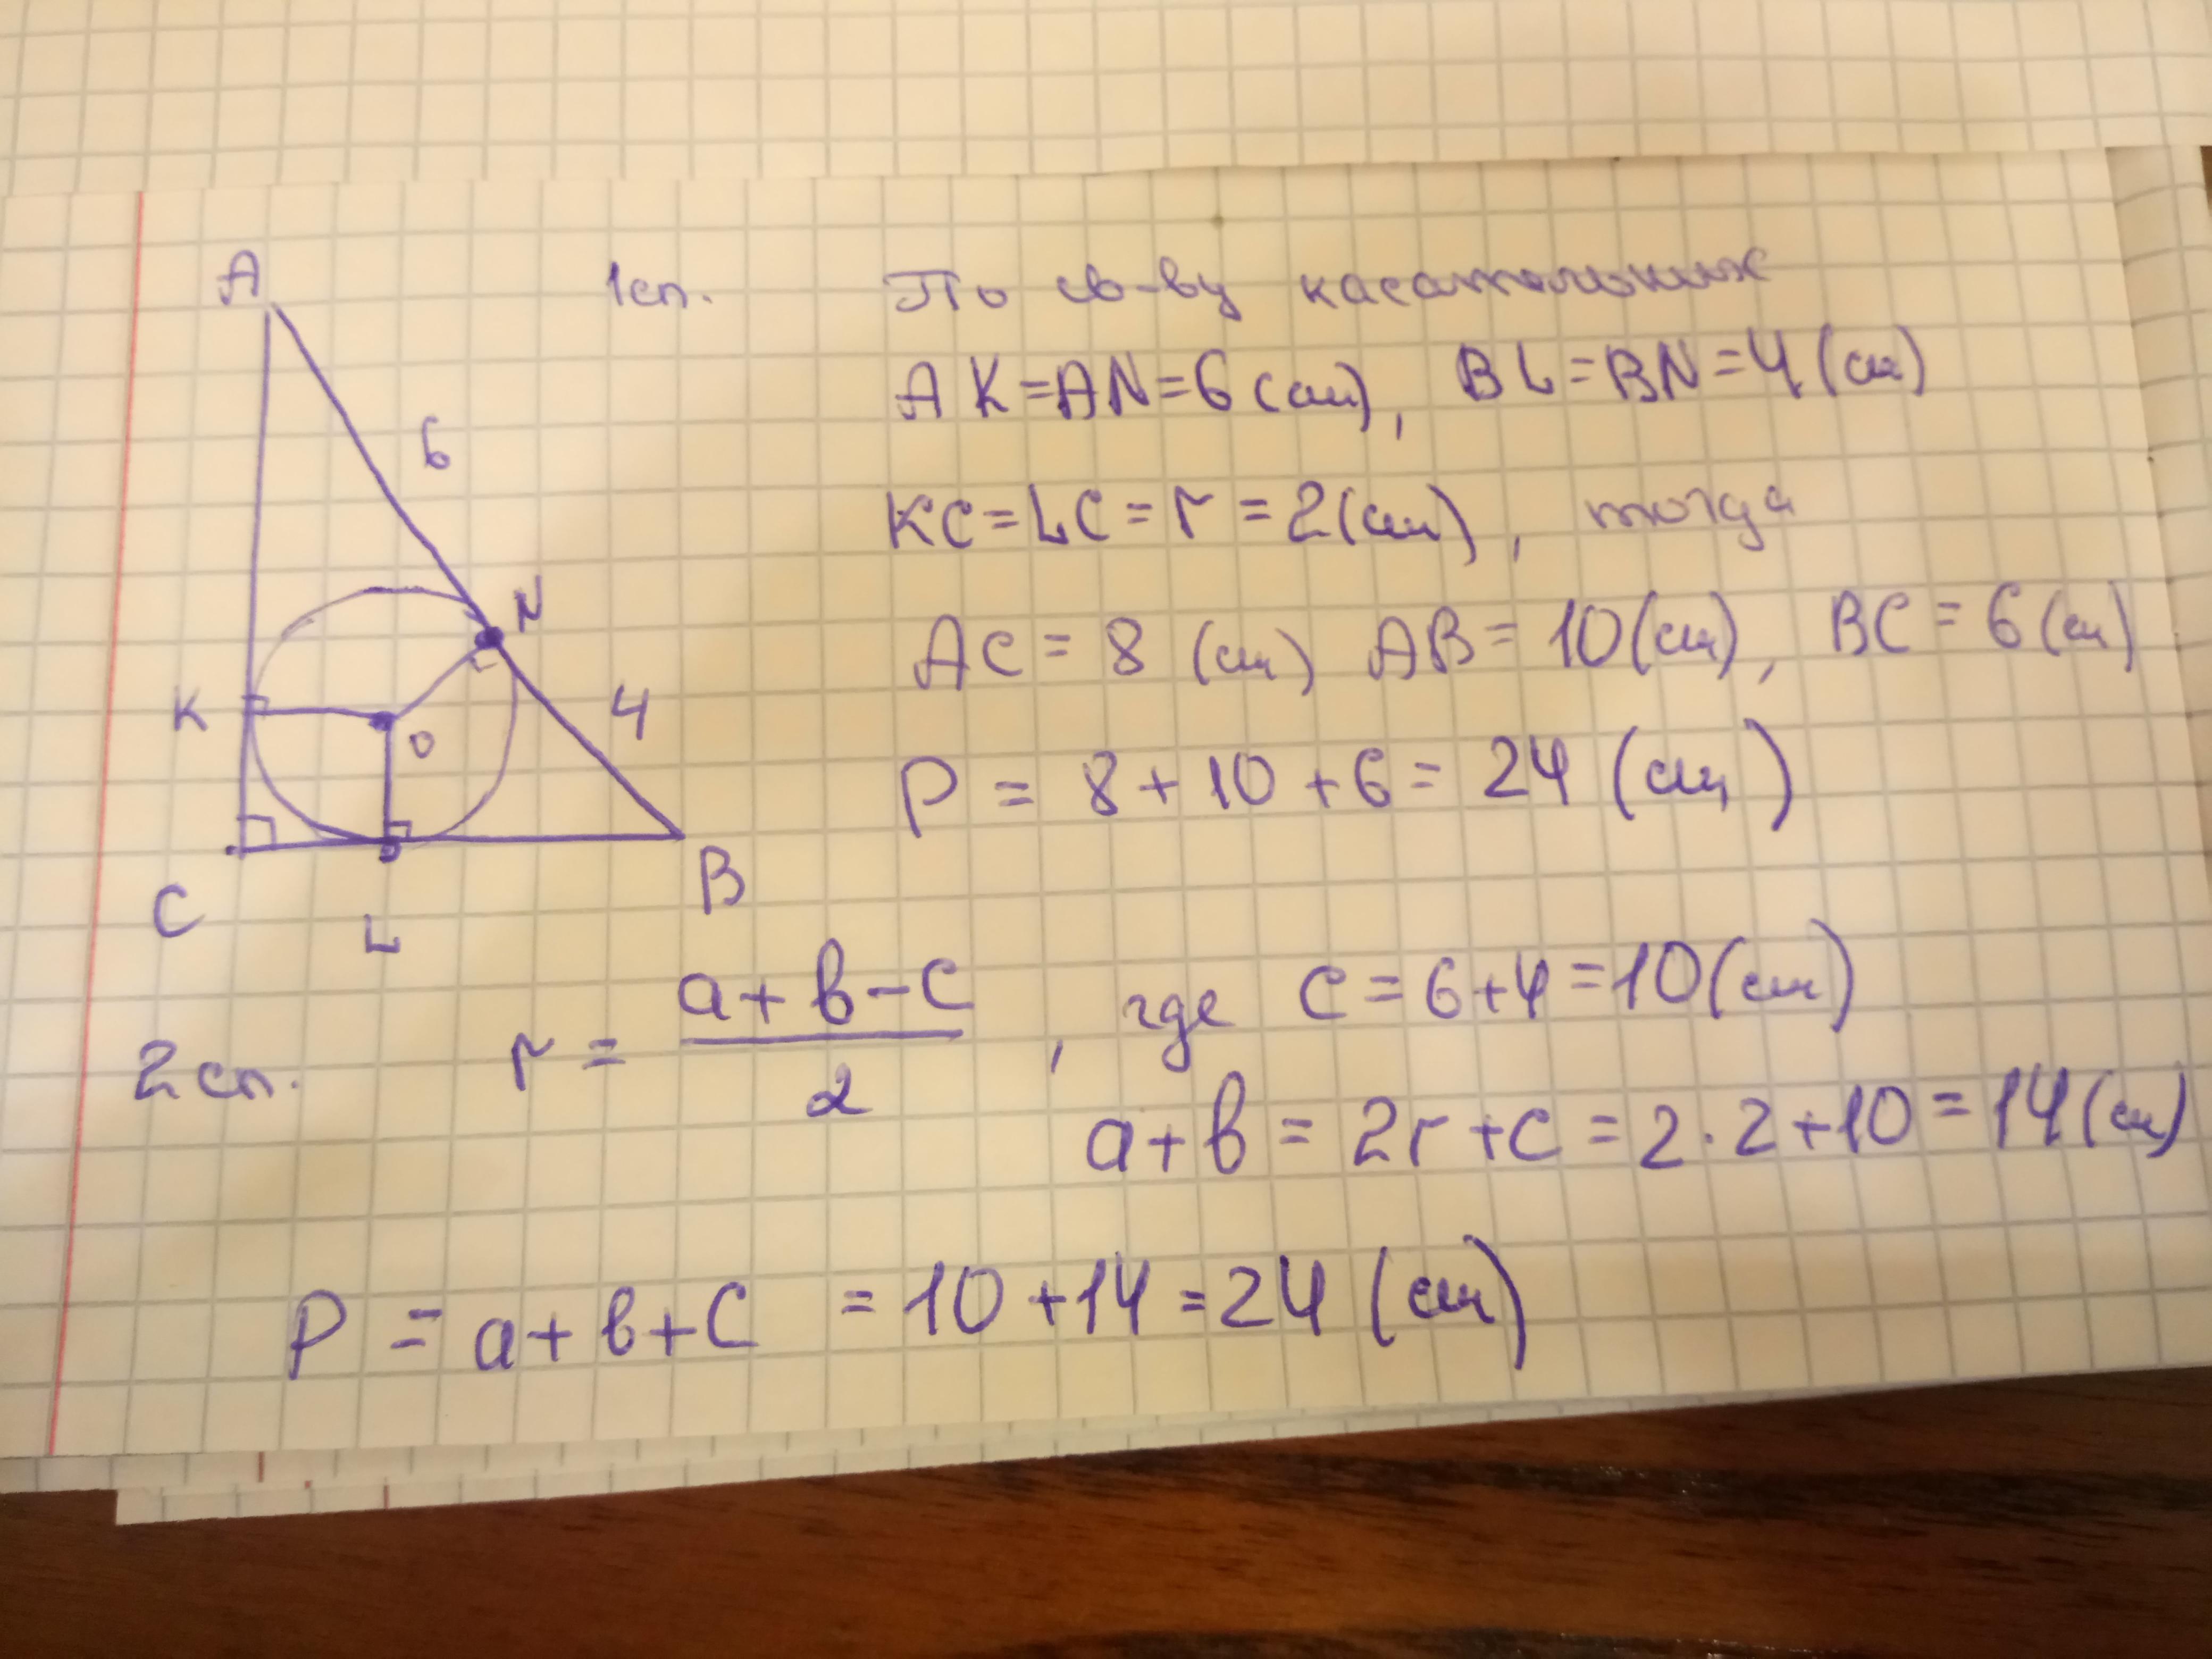 A
1сп. По св-ву касательных
6
AK=AN=6(см), BL=BN=4(см)
KC=LC=r=2(см), тогда
N
AC=8 (см) AB=10(см), BC=6(см)
K
O
4
P = 8+10+6=24 (см)
C
L
B
2сп. r = \frac{a+b-c}{2}, где c=6+4=10(см)
a+b=2r+c=2·2+10=14(см)
P = a+b+c =10+14=24 (см)